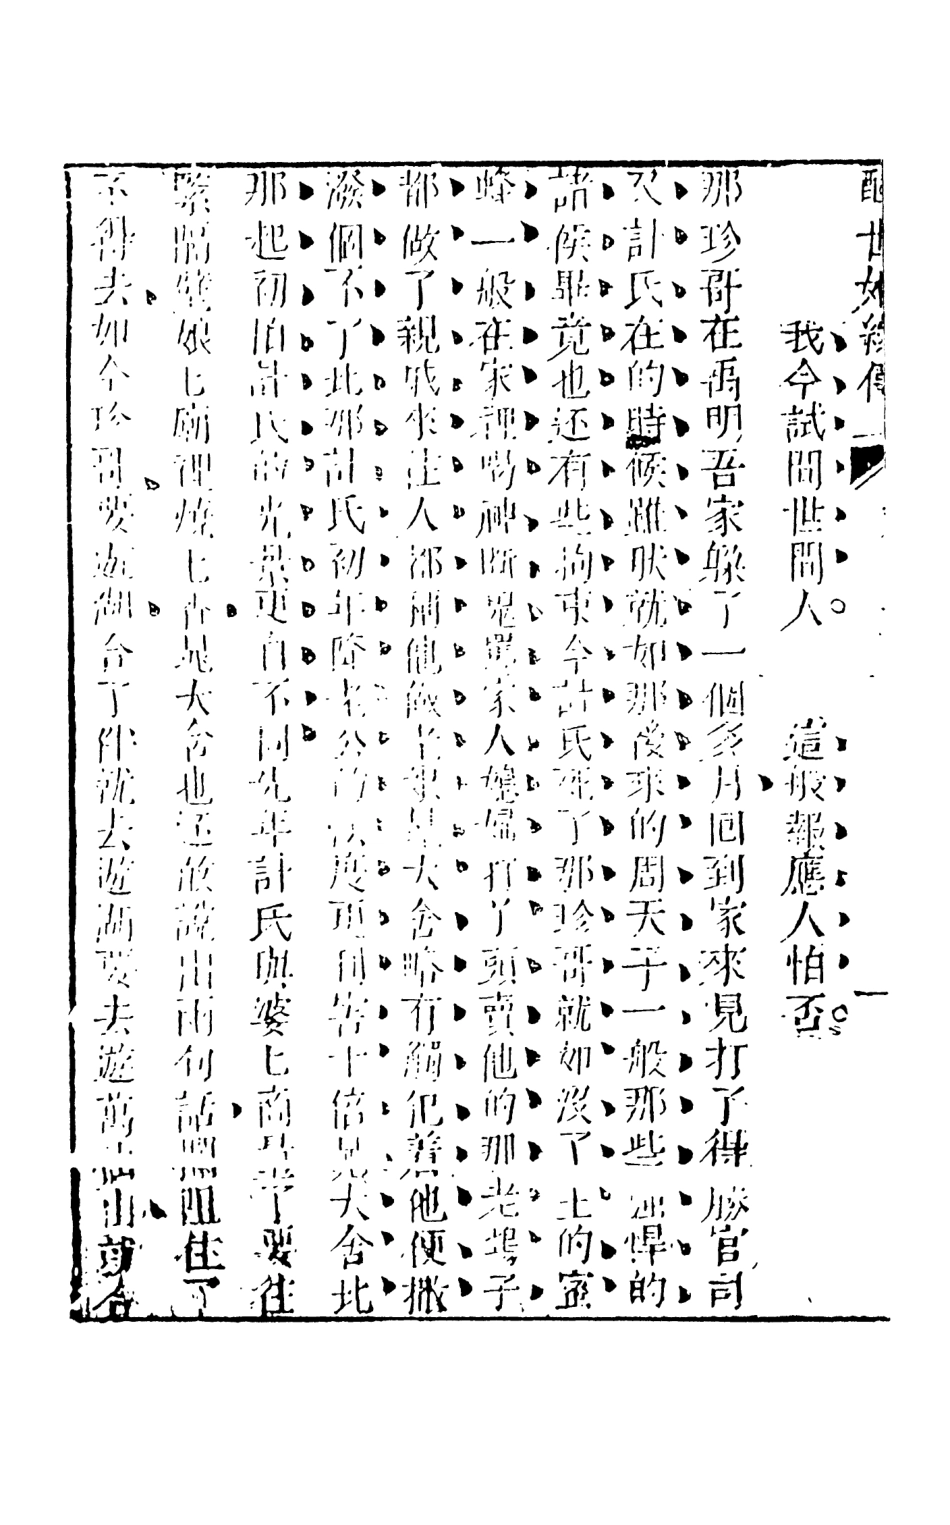 醒世姻緣傳
我今試問世間人　這般報應人怕否
那珍哥在禹明吾家躱了一個多月回到家來見打了得勝官司
又計氏在的時候雖狀就如那後來的周天子一般那些強悍的
諸侯畢竟也还有些拘束今計氏死了那珍哥就如没了王的蜜
蜂一般在家裡喝神斷鬼罵家人媳婦打丫頭賣他的那老鴇子
都做了親戚來往人都稱他做老娘晁大舍略有觸犯着他他便撒
潑個不了比那計氏初年降老公的法度更利害十倍晁大舍比
那起初怕計氏的光景更自不同先年計氏與婆匕商量了要往
緊隔壁娘匕廟裡燒匕香晁大舍也还敢說出兩句話攔阻住了
不得去如今珍哥要遊湖合了伴就去遊湖要去遊萬仙山就合